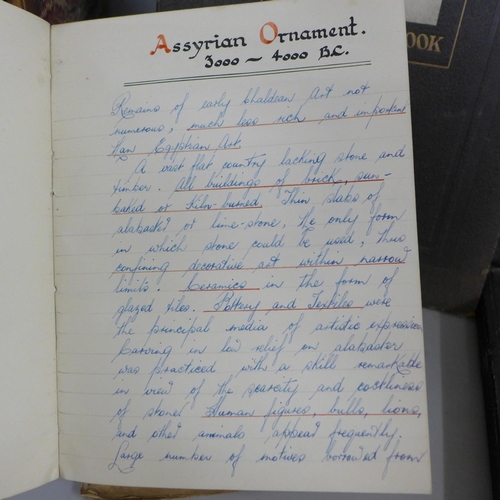 Assyrian Ornament.
3000 ~ 4000 B.C.
Remains of early Chaldean Art not
numerous, much less rich and important
than Egyptian Art.
A vast flat country lacking stone and
timber. All buildings of brick, sun-
baked or kiln-burned. Thin slabs of
alabaster or lime-stone, the only form
in which stone could be used, thus
confining decorative art within narrow
limits. Ceramics in the form of
glazed tiles. Pottery and Textiles were
the principal media of artistic expression
Carving in low relief on alabaster
was practiced with a skill remarkable
in view of the scarcity and costliness
of stone. Human figures, bulls, lions,
and other animals appear frequently.
Large number of motives borrowed from
OOK